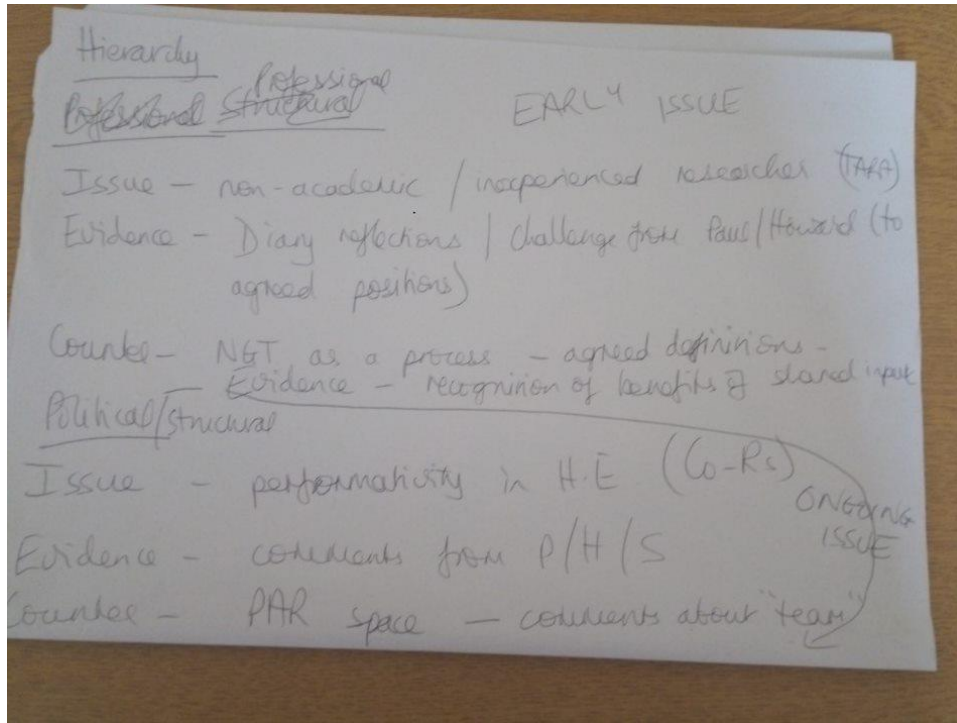 Hierarchy
Professional
Professional Structural
EARLY ISSUE
Issue – non-academic / inexperienced researcher (TARA)
Evidence – Diary reflections / Challenge from Paul/Howard (to
agreed positions)
Counter – NGT as a process – agreed definitions –
Evidence – recognition of benefits of shared input
Political/structural
Issue – performativity in H.E (Co-Rs)
ONGOING
ISSUE
Evidence – comments from P/H/S
Counter – PAR space – comments about "team"